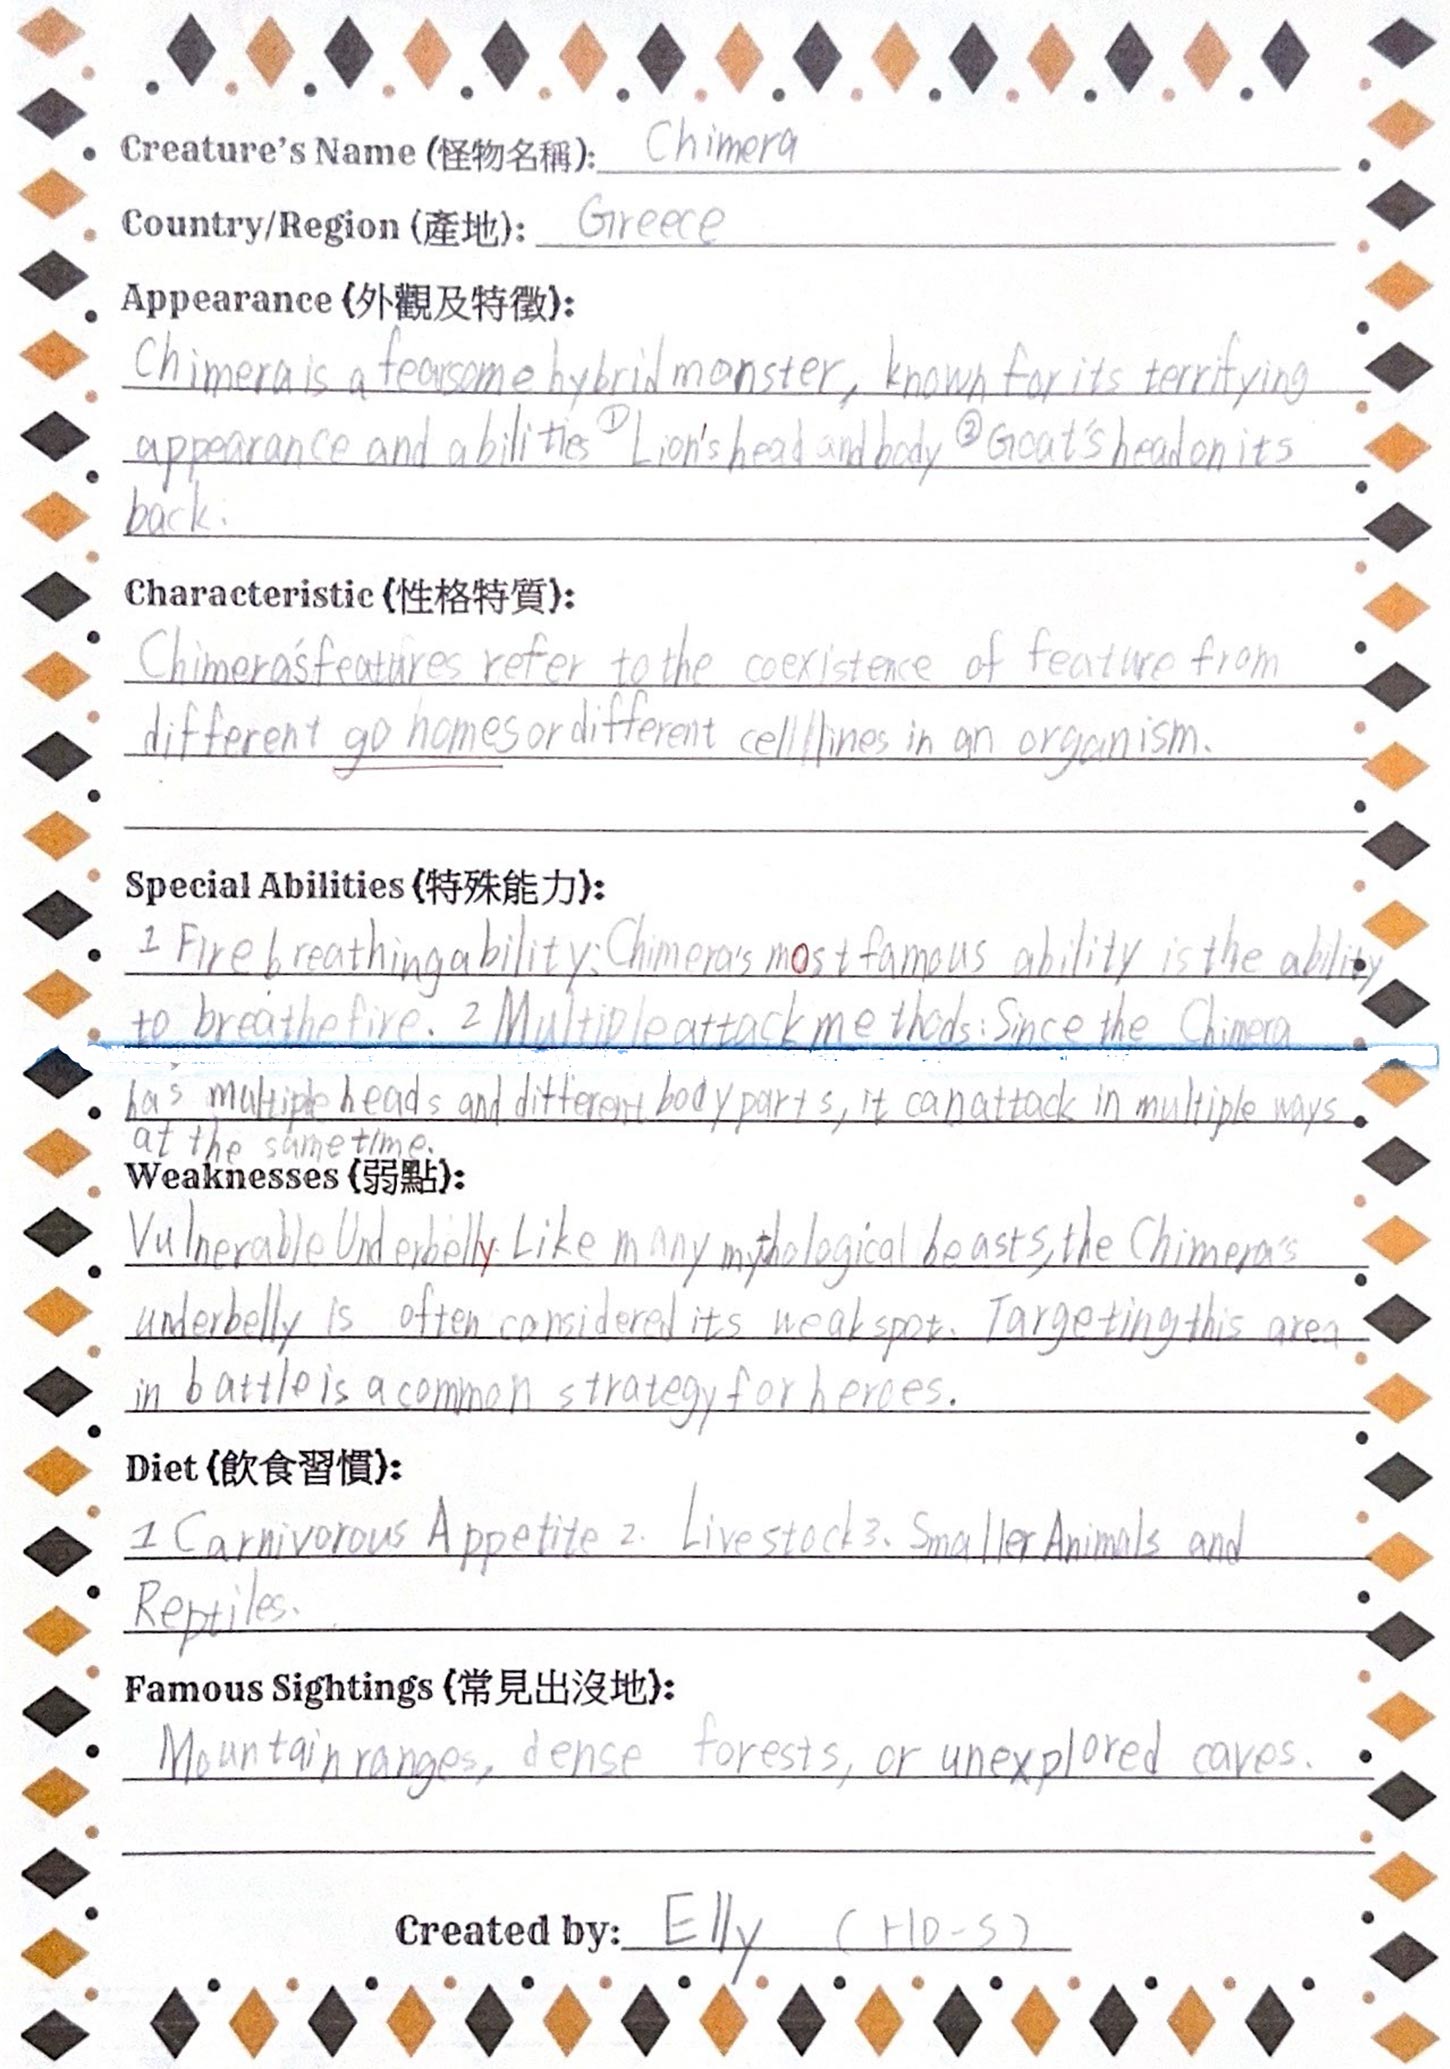 Creature's Name (怪物名稱): Chimera
Country/Region (產地): Greece
Appearance (外觀及特徵):
Chimera is a fearsome hybrid monster, known for its terrifying
appearance and abilities ① Lion's head and body ② Goat's head on its
back.
Characteristic (性格特質):
Chimera's features refer to the coexistence of feature from
different go homes or different cell lines in an organism.
Special Abilities (特殊能力):
1 Fire breathing ability: Chimera's most famous ability is the ability
to breathe fire. 2 Multiple attack methods: Since the Chimera
has multiple heads and different body parts, it can attack in multiple ways
at the same time.
Weaknesses (弱點):
Vulnerable Underbelly. Like many mythological beasts, the Chimera's
underbelly is often considered its weak spot. Targeting this area
in battle is a common strategy for heroes.
Diet (飲食習慣):
1 Carnivorous Appetite 2. Livestock 3. Smaller Animals and
Reptiles.
Famous Sightings (常見出沒地):
Mountain ranges, dense forests, or unexplored caves.
Created by: Elly